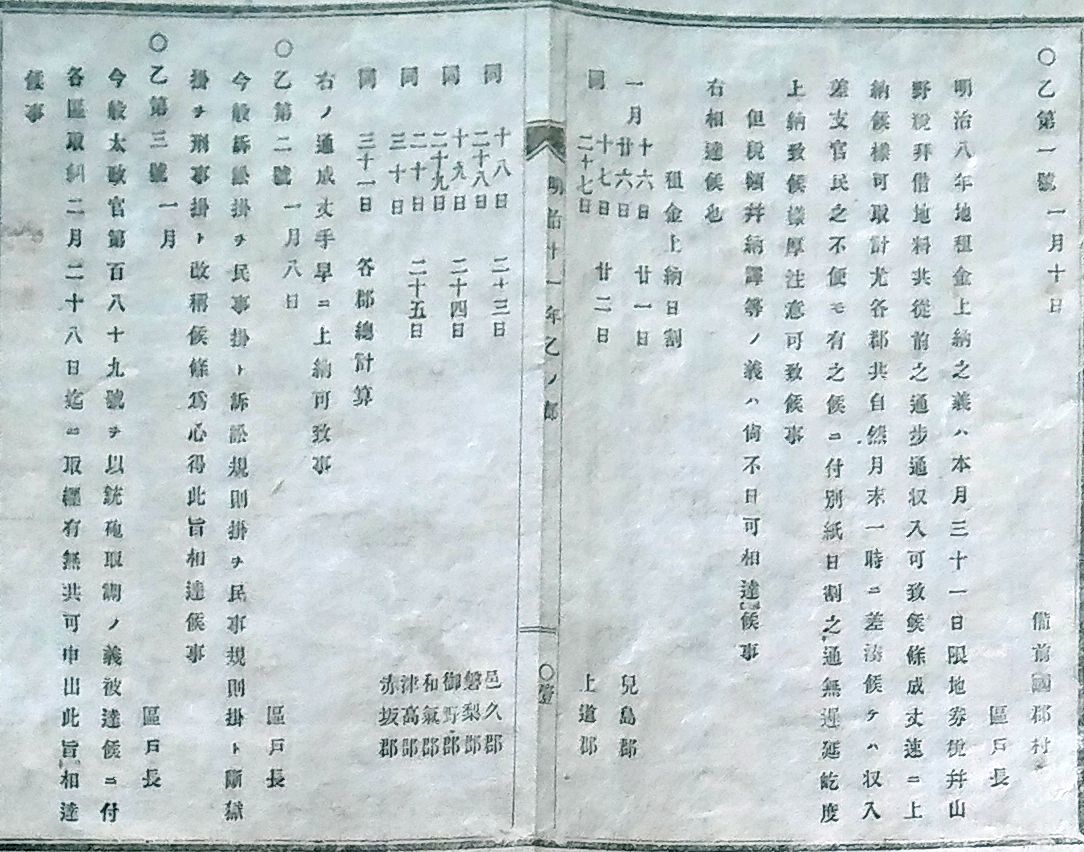 〇乙第一號 一月十日
備前國郡村
區戸長
明治八年地租金上納之義ハ本月三十一日限地券稅幷山
野稅拜借地料共從前之通步通収入可致候條成丈速ニ上
納候樣可取計尤各郡共自然月末一時ニ差湊候テハ収入
差支官民之不便モ有之候ニ付別紙日割之通無遲延屹度
上納致候樣厚注意可致候事
但稅額幷納譯等ノ義ハ倘不日可相達候事
右相達候也
租金上納日割
一月 十六日 廿一日 兒島郡
廿六日
同 十七日 廿二日 上道郡
二十七日
明治十一年乙ノ部 〇壹
同 十八日 二十三日 邑久郡
二十八日 磐梨郡
同 十九日 二十四日 御野郡
二十九日 和氣郡
同 二十日 二十五日 津高郡
三十日 赤坂郡
同 三十一日 各郡總計算
右ノ通成丈手早ニ上納可致事
〇乙第二號 一月八日
區戸長
今般訴訟掛ヲ民事掛ト訴訟規則掛ヲ民事規則掛ト斷獄
掛ヲ刑事掛ト改稱候條爲心得此旨相達候事
〇乙第三號 一月
區戸長
今般太政官第百八十九號ヲ以銃砲取締ノ義被達候ニ付
各區取糾二月二十八日迄ニ取纒有無共可申出此旨相達
候事